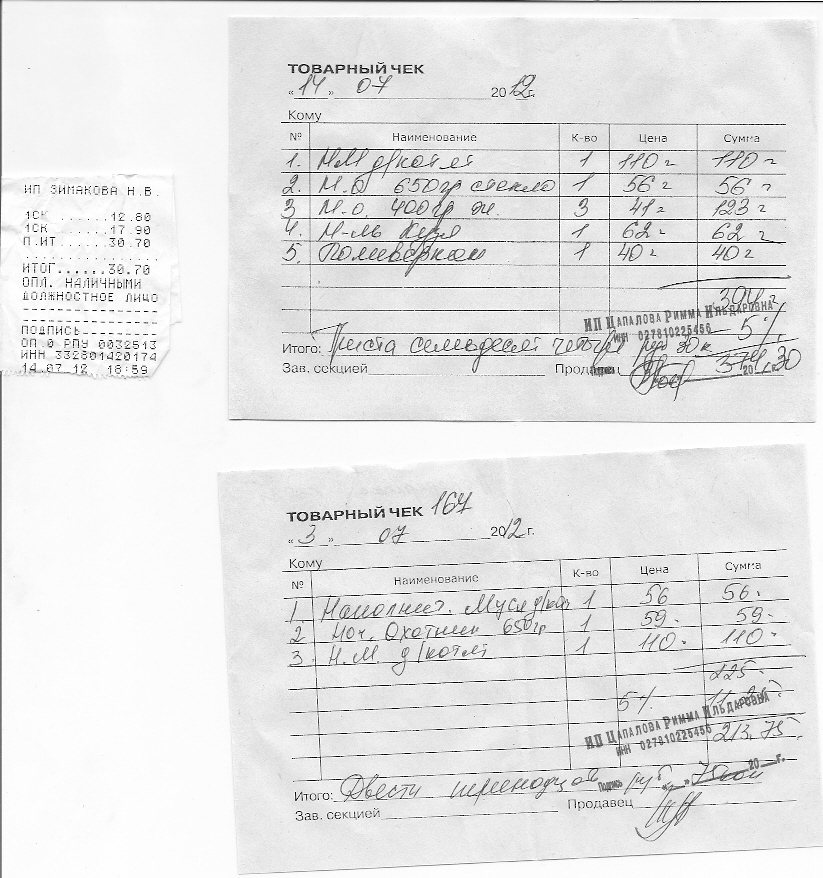 ИП ЗИМАКОВА Н.В.
1СК ......12.80
1СК ......17.90
П.ИТ .....30.70
ИТОГ......30.70
ОПЛ. НАЛИЧНЫМИ
ДОЛЖНОСТНОЕ ЛИЦО
ПОДПИСЬ
ОП 0 РПУ 0032513
ИНН 332801420174
14.07.12 18:59
ТОВАРНЫЙ ЧЕК
«14» 07 2012г.
Кому
№ Наименование К-во Цена Сумма
1. Н.М. д/котят 1 110 110
2. М.О. 650гр стекло 1 56 56
3 М.О. 400гр 3 41 123
4. 1 62 62
5. 1 40 40
391
ИП ЦАПАЛОВА РИММА ИЛЬДАРОВНА
ИНН 027810225456 5%
Итого: Триста семьдесят четыре руб 30 к
Зав. секцией Продавец 20 г.
ТОВАРНЫЙ ЧЕК 167
«3» 07 2012г.
Кому
№ Наименование К-во Цена Сумма
1. Наполнит. Муся д/кош 1 56 56
2 Ноч. Охотник 650гр 1 59 59
3. Н.М. д/котят 1 110 110
225
5%
ИП ЦАПАЛОВА РИММА ИЛЬДАРОВНА
ИНН 027810225456 213.75
Итого: Двести тринадцать руб 75 коп
Подпись 20 г.
Зав. секцией Продавец